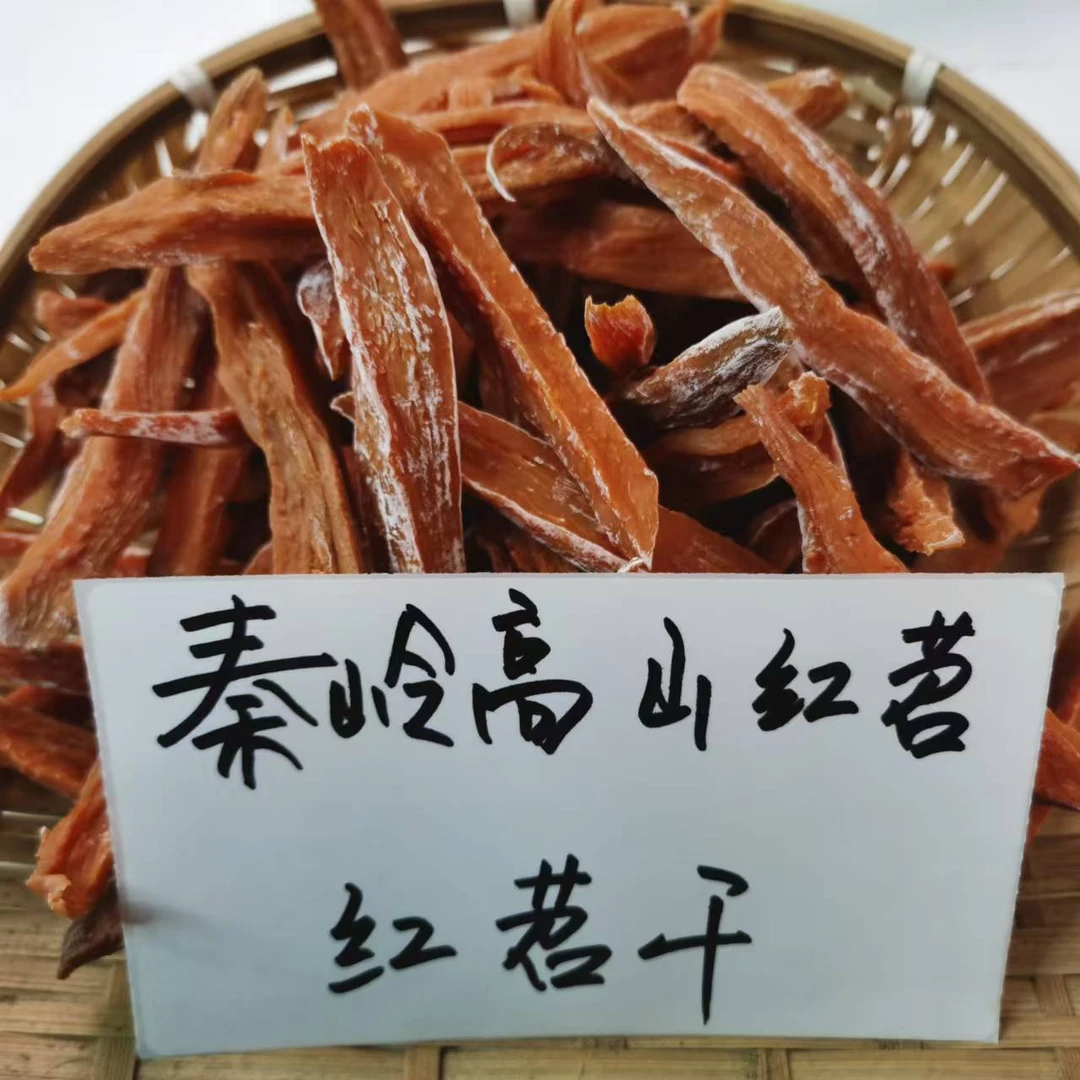 秦岭高山红苕
红苕干